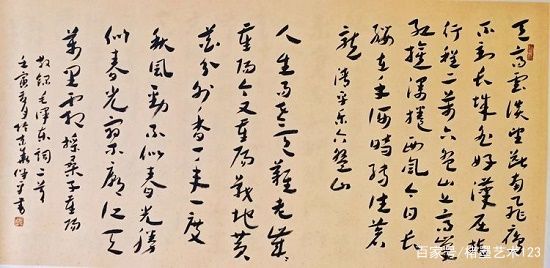 天高云淡望断南飞雁
不到长城非好汉屈指
行程二万六盘山上高峰
红旗漫卷西风今日长
缨在手何时缚住苍
龙 清平乐六盘山
人生易老天难老岁岁
重阳今又重阳战地黄
花分外香一年一度
秋风劲不似春光胜
似春光寥廓江天
万里霜 采桑子重阳
敬录毛泽东词二首
壬寅
百家号/楷墨艺术123